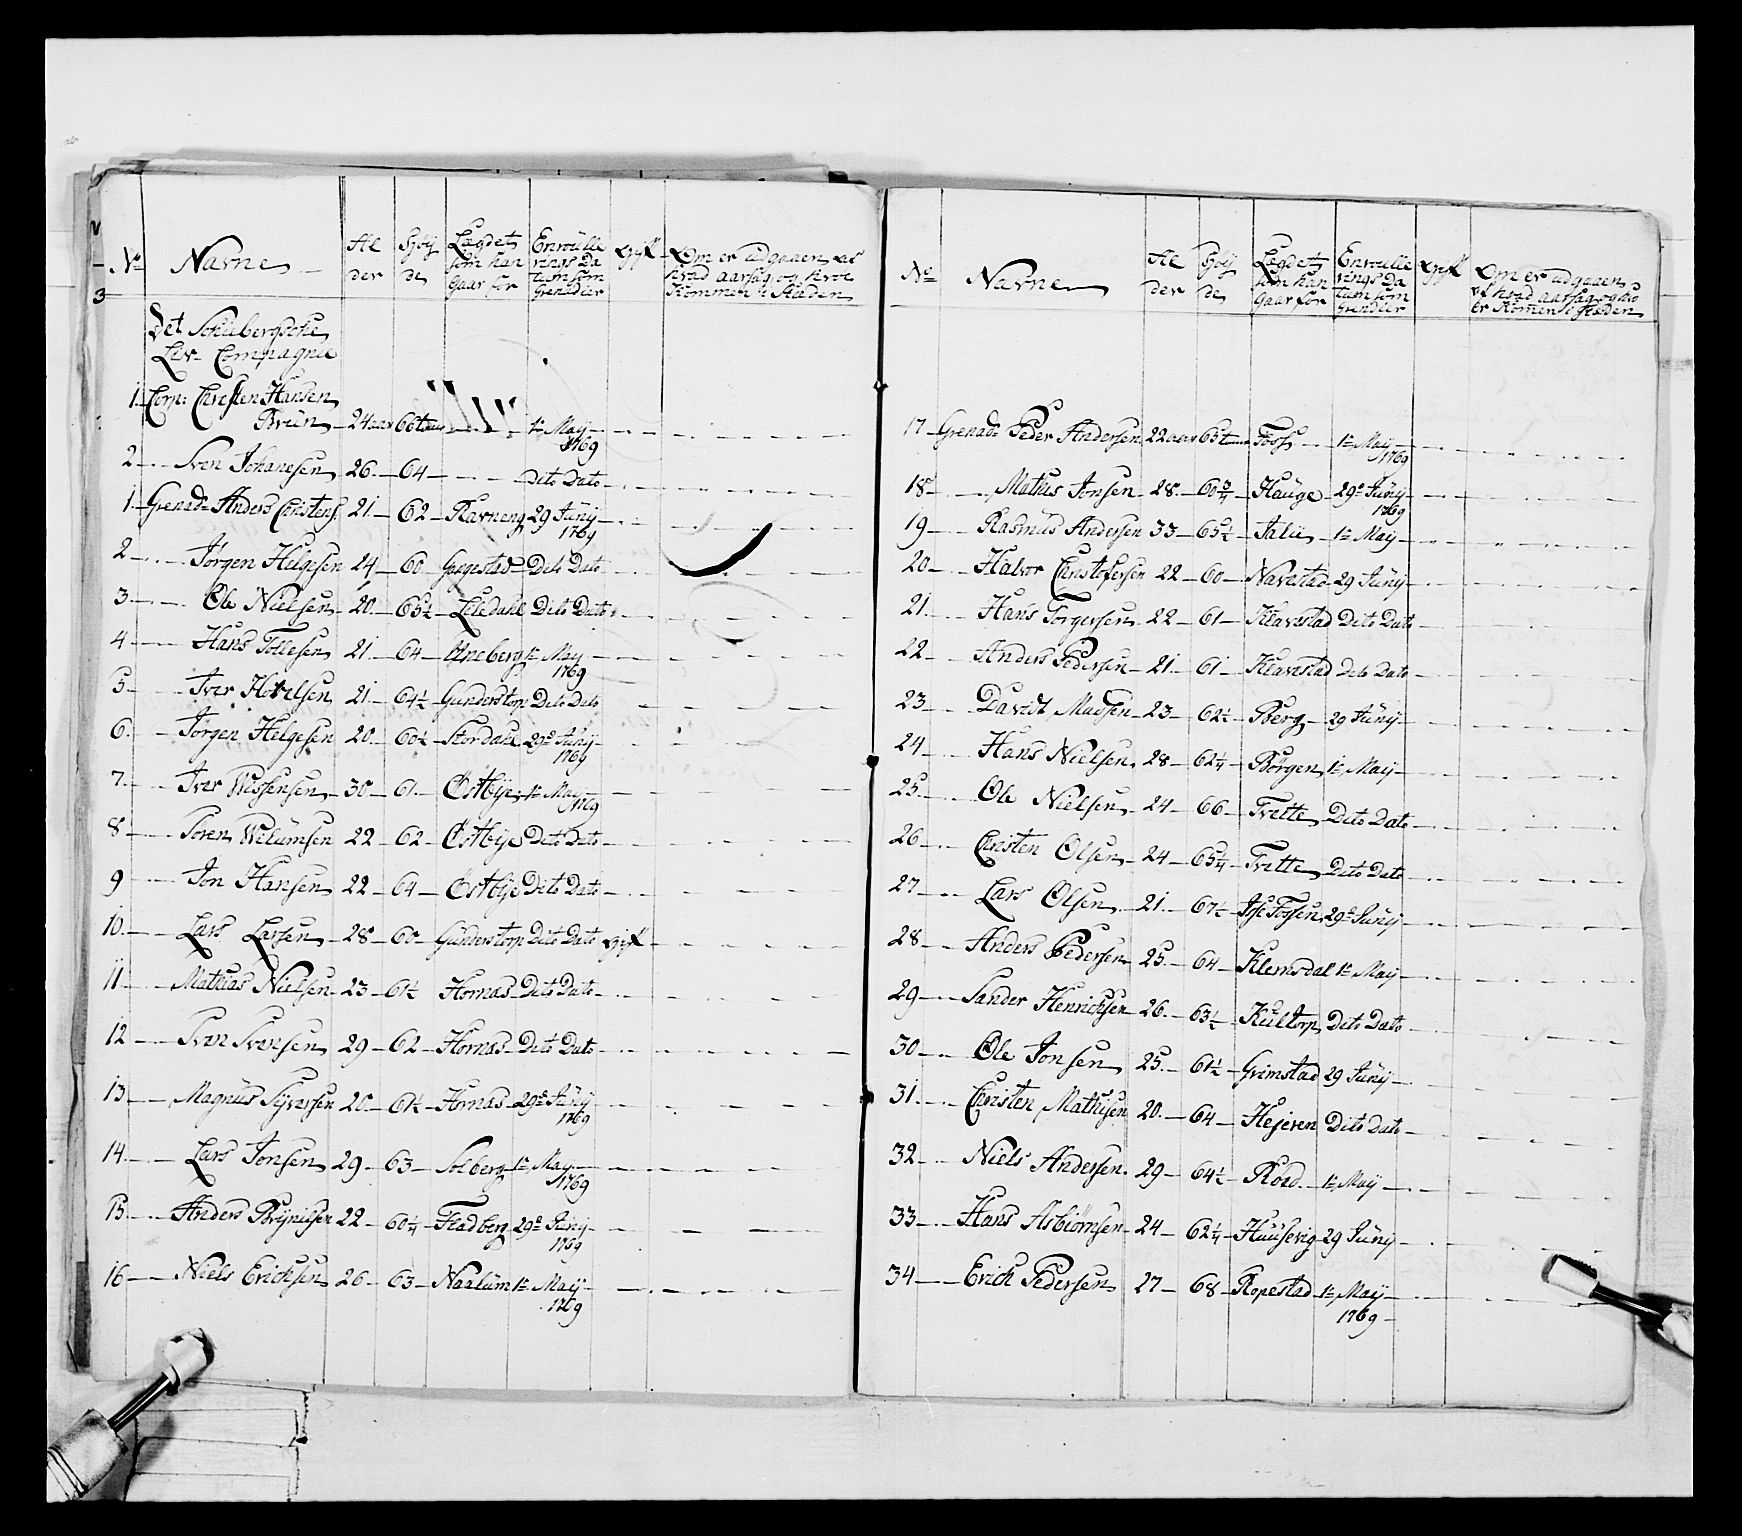 No Navne Al der Höij de Lægdet som han gaar for Enroulle rings Da tum som Grenadier Gift Om er udgaaen af hvad aarsag og hvem Kommen i Stæden
Det
Liv Compagnie
1. Corp: Christen Hansen
Brün 24 aar 66 tom 1te Maij 1769
2 Sven Johanesen 26 64 Dito Dato
1 Grenad: Anders Christens. 21 62 Ravneng 29 Junij 1769
2 Jörgen Helgesen 24 60 Dito Dato
3 Ole Nielsen 20 65½ Leledahl Dito Dato
4 Hans Tollesen 21 64 Uneberg 1te Maij 1769
5 Iver 21 64½ Gunderstorp Dito Dato
6 Jörgen Helgesen 20 60½ Stordahl 29de Junij 1769
7 Iver 30 61 Östbije 1te Maij 1769
8 Sören Wilumsen 22 62 Östbije Dito Dato
9 Jon Hansen 22 64 Östbije Dito Dato
10 Lars Larsen 28 60 Gunderstorp Dito Dato gift
11 Mathias Nielsen 23 61½ Hornas Dito Dato
12 Sven Svensen 29 62 Hornas Dito Dato
13 Magnus Syversen 20 61½ Hornas 29de Junij 1769
14 Lars Jonsen 29 63 Solberg 1te Maij 1769
15 Anders Brijnilsen 22 60¼ Fladberg 29de Junij 1769
16 Niels Erichsen 26 63 Naalum 1te Maij 1769
No Navne Al der Höij de Lægdet som han gaar for Enroulle rings Da tum som Grenadier Gift Om er udgaaen af hvad aarsag og hvo er Komen i Stæden
17 Grenad: Peder Andersen 22 aar 65 tom Foss 1te Maij 1769
18 Mathis Jonsen 28 60¾ Hauge 29de Junij 1769
19 Rasmus Andersen 33 65½ Jalu 1te Maij
20 Halvor Christofersen 22 60 Navestad 29 Junij
21 Hans Torgersen 22 61 Klavestad Dito Dato
22 Anders Pedersen 21 61 Klavestad Dito Dato
23 David Madsen 23 62½ Berg 29 Junij
24 Hans Nielsen 28 62¼ Börgen 1te Maij
25 Ole Nielsen 24 66 Tvette Dito Dato
26 Christen Olsen 24 65¼ Tvette Dito Dato
27 Lars Olsen 21 67½ 29de Junij
28 Anders Pedersen 25 64 Klemsdal 1te Maij
29 Sander Henrichsen 26 63½ Kultorp Dito Dato
30 Ole Jonsen 25 61½ Grimstad 29 Junij
31 Christen Mathisen 20 64 Hejeren Dito Dato
32 Niels Andersen 29 64½ Röed 1te Maij
33 Hans Asbiörnsen 24 62¼ Huusevig 29 Junij
34 Erich Pedersen 27 68 Ropestad 1te Maij 1769